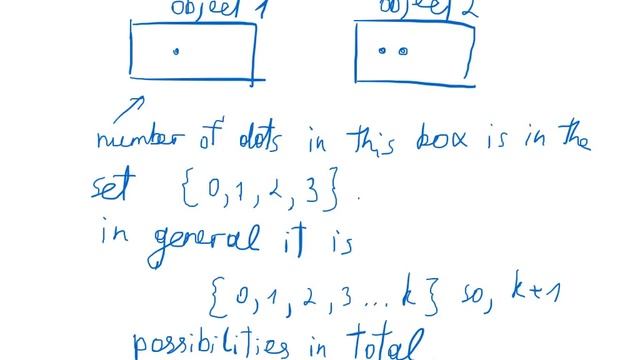 object 1 object 2
number of dots in this box is in the
set {0,1,2,3}.
in general it is
{0,1,2,3...k} so, k+1
possibilities in total